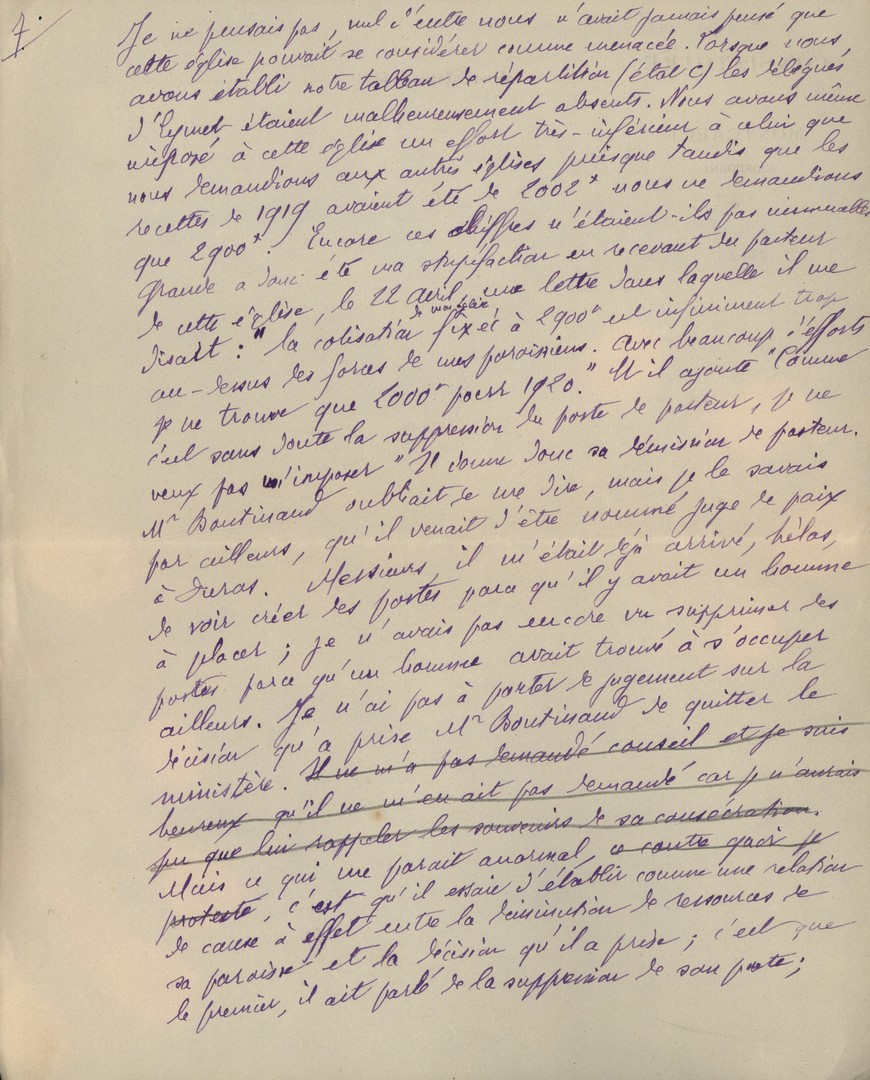 7./
Je ne pensais pas, nul d'entre nous n'avait jamais pensé que
cette église pouvait se considérer comme menacée. Lorsque nous
avons établi notre tableau de répartition (état C) les délégués
d'Eymet étaient malheureusement absents. Nous avons même
imposé à cette église un effort très-inférieur à celui que
nous demandions aux autres églises puisque tandis que les
recettes de 1919 avaient été de 2002 f nous ne demandions
que 2900 f. Encore ces chiffres n'étaient-ils pas immuables
Grande a donc été ma stupéfaction en recevant du pasteur
de cette église, le 22 avril, une lettre dans laquelle il me
disait : "la cotisation de mon église fixée à 2900 f est infiniment trop
au-dessus des forces de mes paroissiens. Avec beaucoup d'efforts
je ne trouve que 2000 f pour 1920." Et il ajoute "Comme
c'est sans doute la suppression du poste de pasteur, je ne
veux pas m'imposer" Il donne donc sa démission de pasteur.
Mr Boutinaud oubliait de me dire, mais je le savais
par ailleurs, qu'il venait d'être nommé juge de paix
à Duras. Messieurs, il m'était déjà arrivé, hélas,
de voir créer des postes parce qu'il y avait un homme
à placer ; je n'avais pas encore vu supprimer des
postes parce qu'un homme avait trouvé à s'occuper
ailleurs. Je n'ai pas à porter de jugement sur la
décision qu'a prise Mr Boutinaud de quitter le
ministère. Il ne m'a pas demandé conseil et je suis
heureux qu'il ne m'en ait pas demandé car je n'aurais
pu que lui rappeler les souvenirs de sa consécration.
Mais ce qui me parait anormal, ce contre quoi je
proteste, c'est qu'il essaie d'établir comme une relation
de cause à effet entre la diminution de ressources de
sa paroisse et la décision qu'il a prise ; c'est que
le premier, il ait parlé de la suppression de son poste ;